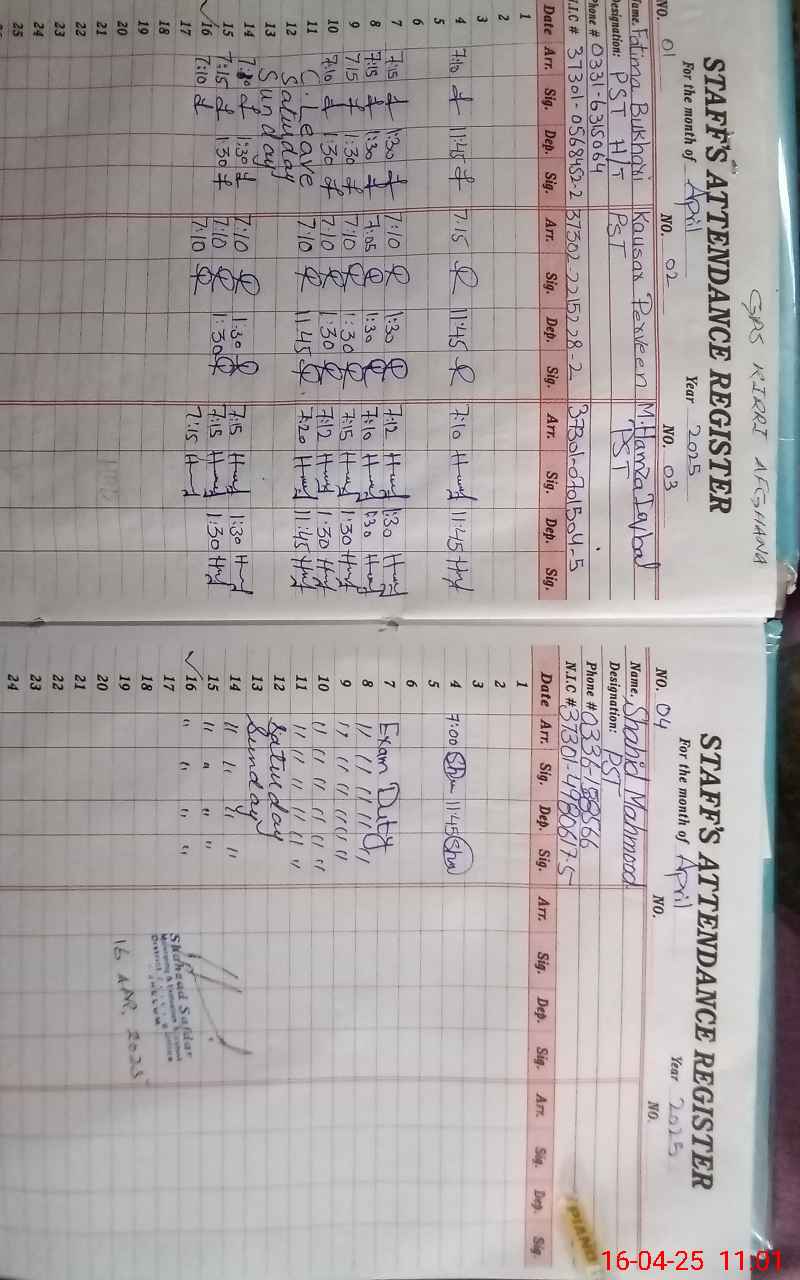 GPS KIRRI AFGHANA
STAFF'S ATTENDANCE REGISTER
For the month of April Year 2025
NO. 01 NO. 02 NO. 03
Name. Fatima Bukhari Kausar Perveen M.Hamza Iqbal
Designation: PST H/T PST PST
Phone # 0331-6315064
N.I.C # 37301-0568452-2 37302-2215228-2 37301-0701504-5
Date Arr. Sig. Dep. Sig. Arr. Sig. Dep. Sig. Arr. Sig. Dep. Sig.
1
2
3
4 7:10 11:45 7:15 11:45 7:10 11:45
5
6
7 7:15 1:30 7:10 1:30 7:12 1:30
8 7:15 1:30 7:05 1:30 7:10 1:30
9 7:15 1:30 7:10 1:30 7:15 1:30
10 7:10 1:30 7:10 1:30 7:12 1:30
11 C. Leave 7:10 11:45 7:20 11:45
12 Saturday
13 Sunday
14 1:30 7:10 1:30 7:15 1:30
15 7:15 1:30 7:10 1:30 7:15 1:30
16 7:10 7:10 7:15
17
18
19
20
21
22
23
24
25
STAFF'S ATTENDANCE REGISTER
For the month of April Year 2025
NO. 04 NO. NO.
Name. Shahid Mahmood
Designation: PST
Phone #
N.I.C # 37301-4980617-5
Date Arr. Sig. Dep. Sig. Arr. Sig. Dep. Sig. Arr. Sig. Dep. Sig.
1
2
3
4 7:00 11:45
5
6
7 Exam Duty
8 // // // // //
9 // // // // //
10 // // // // //
11 // // // // //
12 Saturday
13 Sunday
14 // // // //
15 // // // //
16 // // // //
17
18
19
20
21
22
23
24
Shahzad Safdar
16 APR 2025
PIANO
16-04-25 11:01